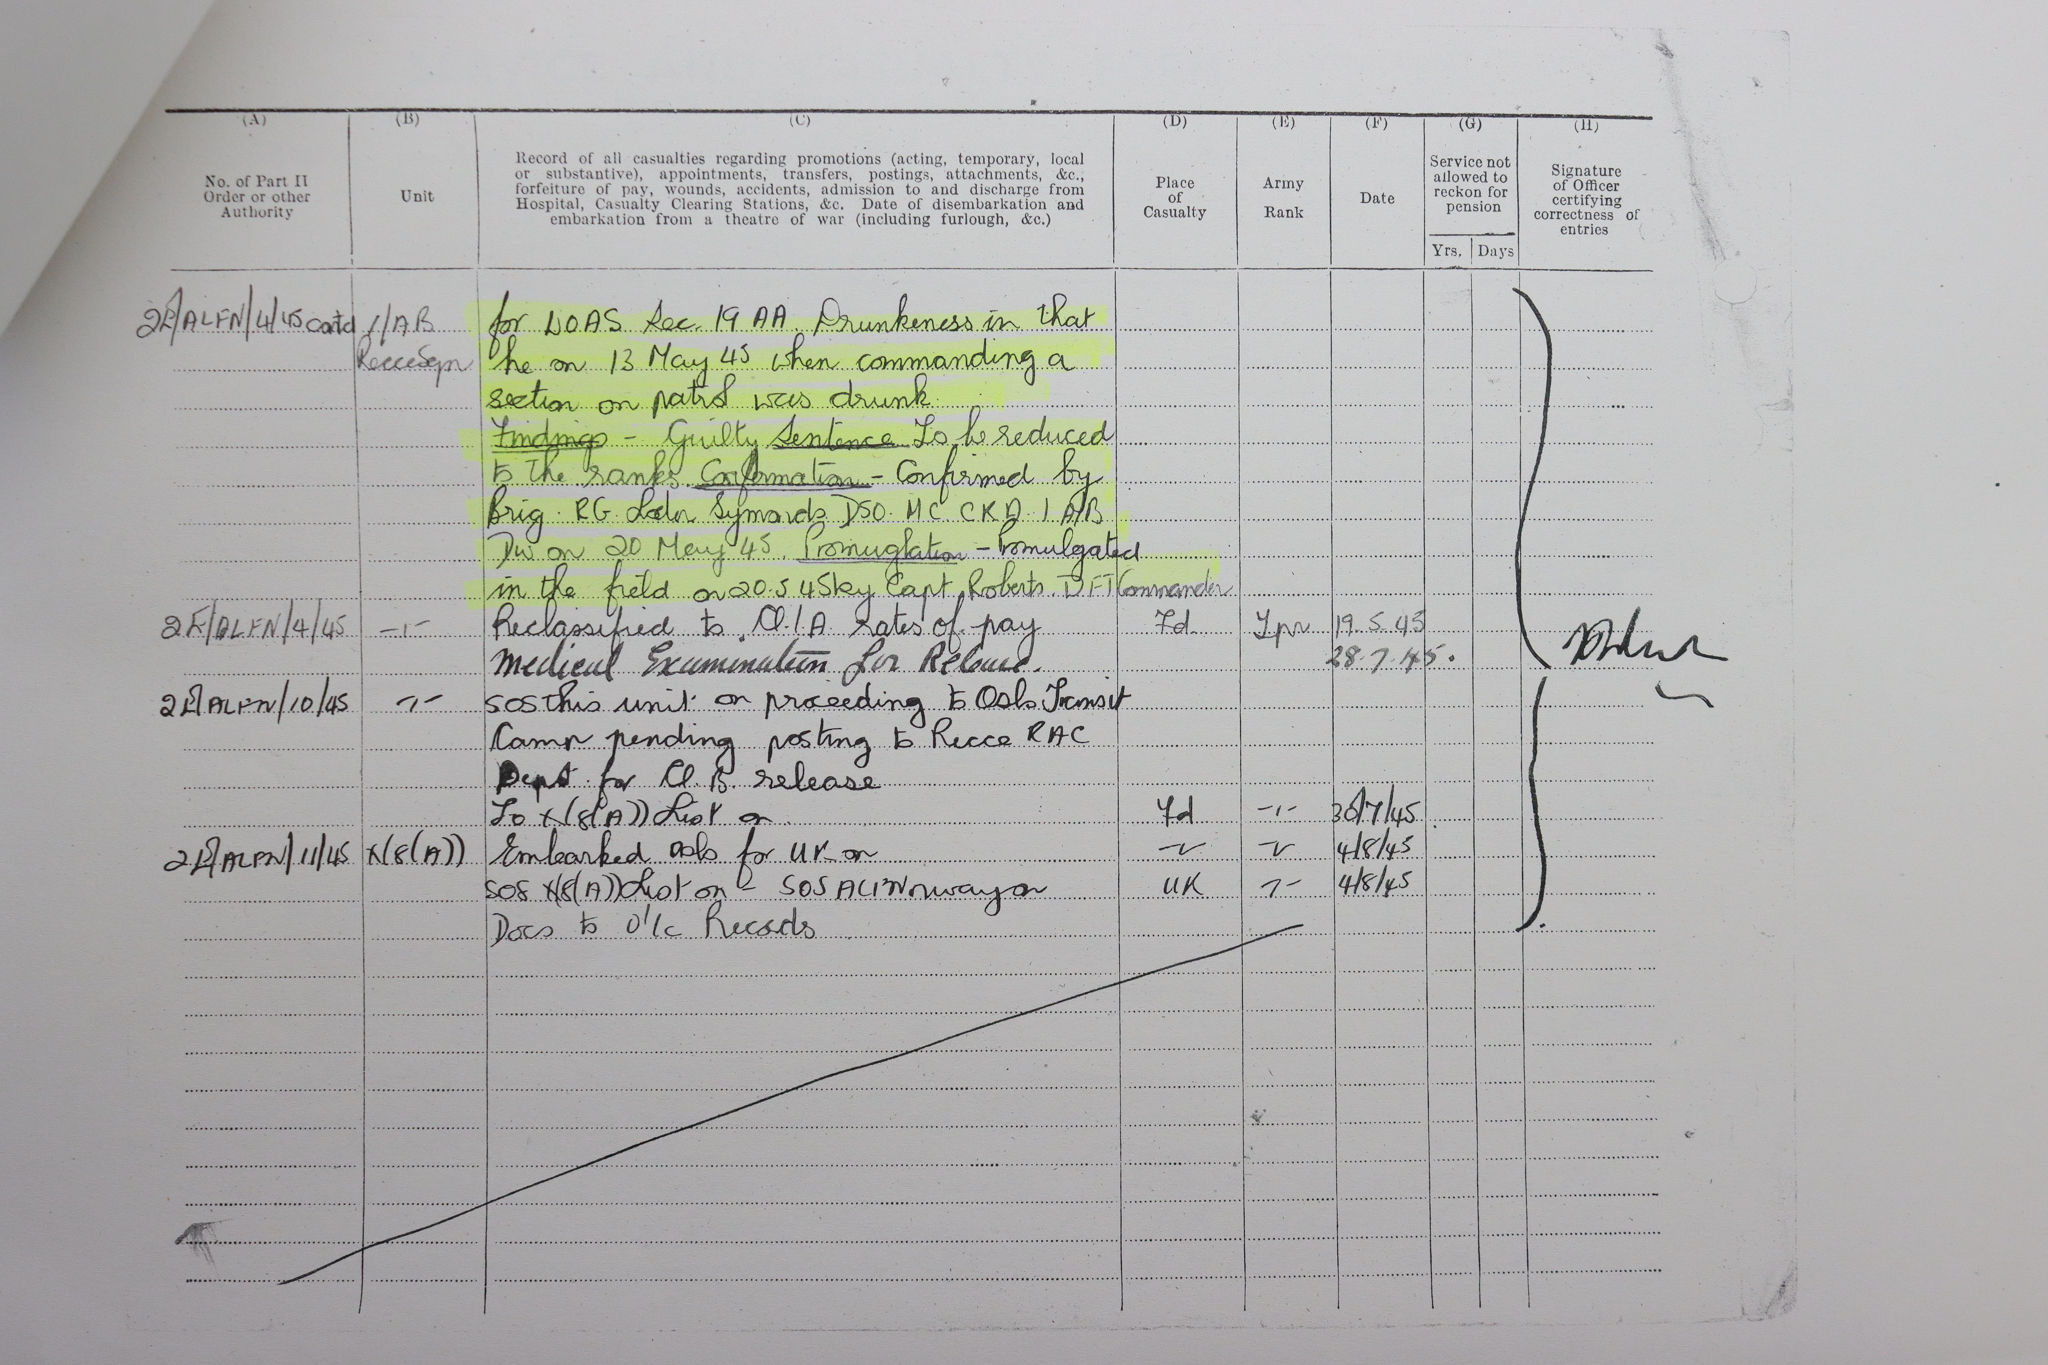 (A) (B) (C) (D) (E) (F) (G) (H)
No. of Part II Order or other Authority
Unit
Record of all casualties regarding promotions (acting, temporary, local
or substantive), appointments, transfers, postings, attachments, &c.,
forfeiture of pay, wounds, accidents, admission to and discharge from
Hospital, Casualty Clearing Stations, &c. Date of disembarkation and
embarkation from a theatre of war (including furlough, &c.)
Place of Casualty
Army Rank
Date
Service not allowed to reckon for pension
Yrs. Days
Signature of Officer certifying correctness of entries
/ALFN/4/45 contd 1/AB for WOAS Sec. 19 AA. Drunkeness in that
Recce Sqn he on 13 May 45 when commanding a
section on patrol was drunk
Findings - Guilty Sentence To be reduced
to the ranks Confirmation - Confirmed by
Brig. RG Loder Symonds DSO. MC. 1 A/B
Div on 20 May 45. Promuglation - Promulgated
in the field on 20.5.45 by Capt. Roberts. Commander
/ALFN/4/45 -"- Reclassified to Cl. 1 A rates of pay Fd. Tpr 19.5.45
Medical Examination for Release. 28.7.45.
/ALFN/10/45 -"- SOS this unit on proceeding to Oslo Transit
Camp pending posting to Recce RAC
Depot for Cl. B. release
To X(8(A)) List on Fd -"- 30/7/45
/ALFN/11/45 X(8(A)) Embarked Oslo for UK on -"- -"- 4/8/45
SOS X(8(A)) List on - SOS ALF Norway on UK -"- 4/8/45
Docs to O i/c Records